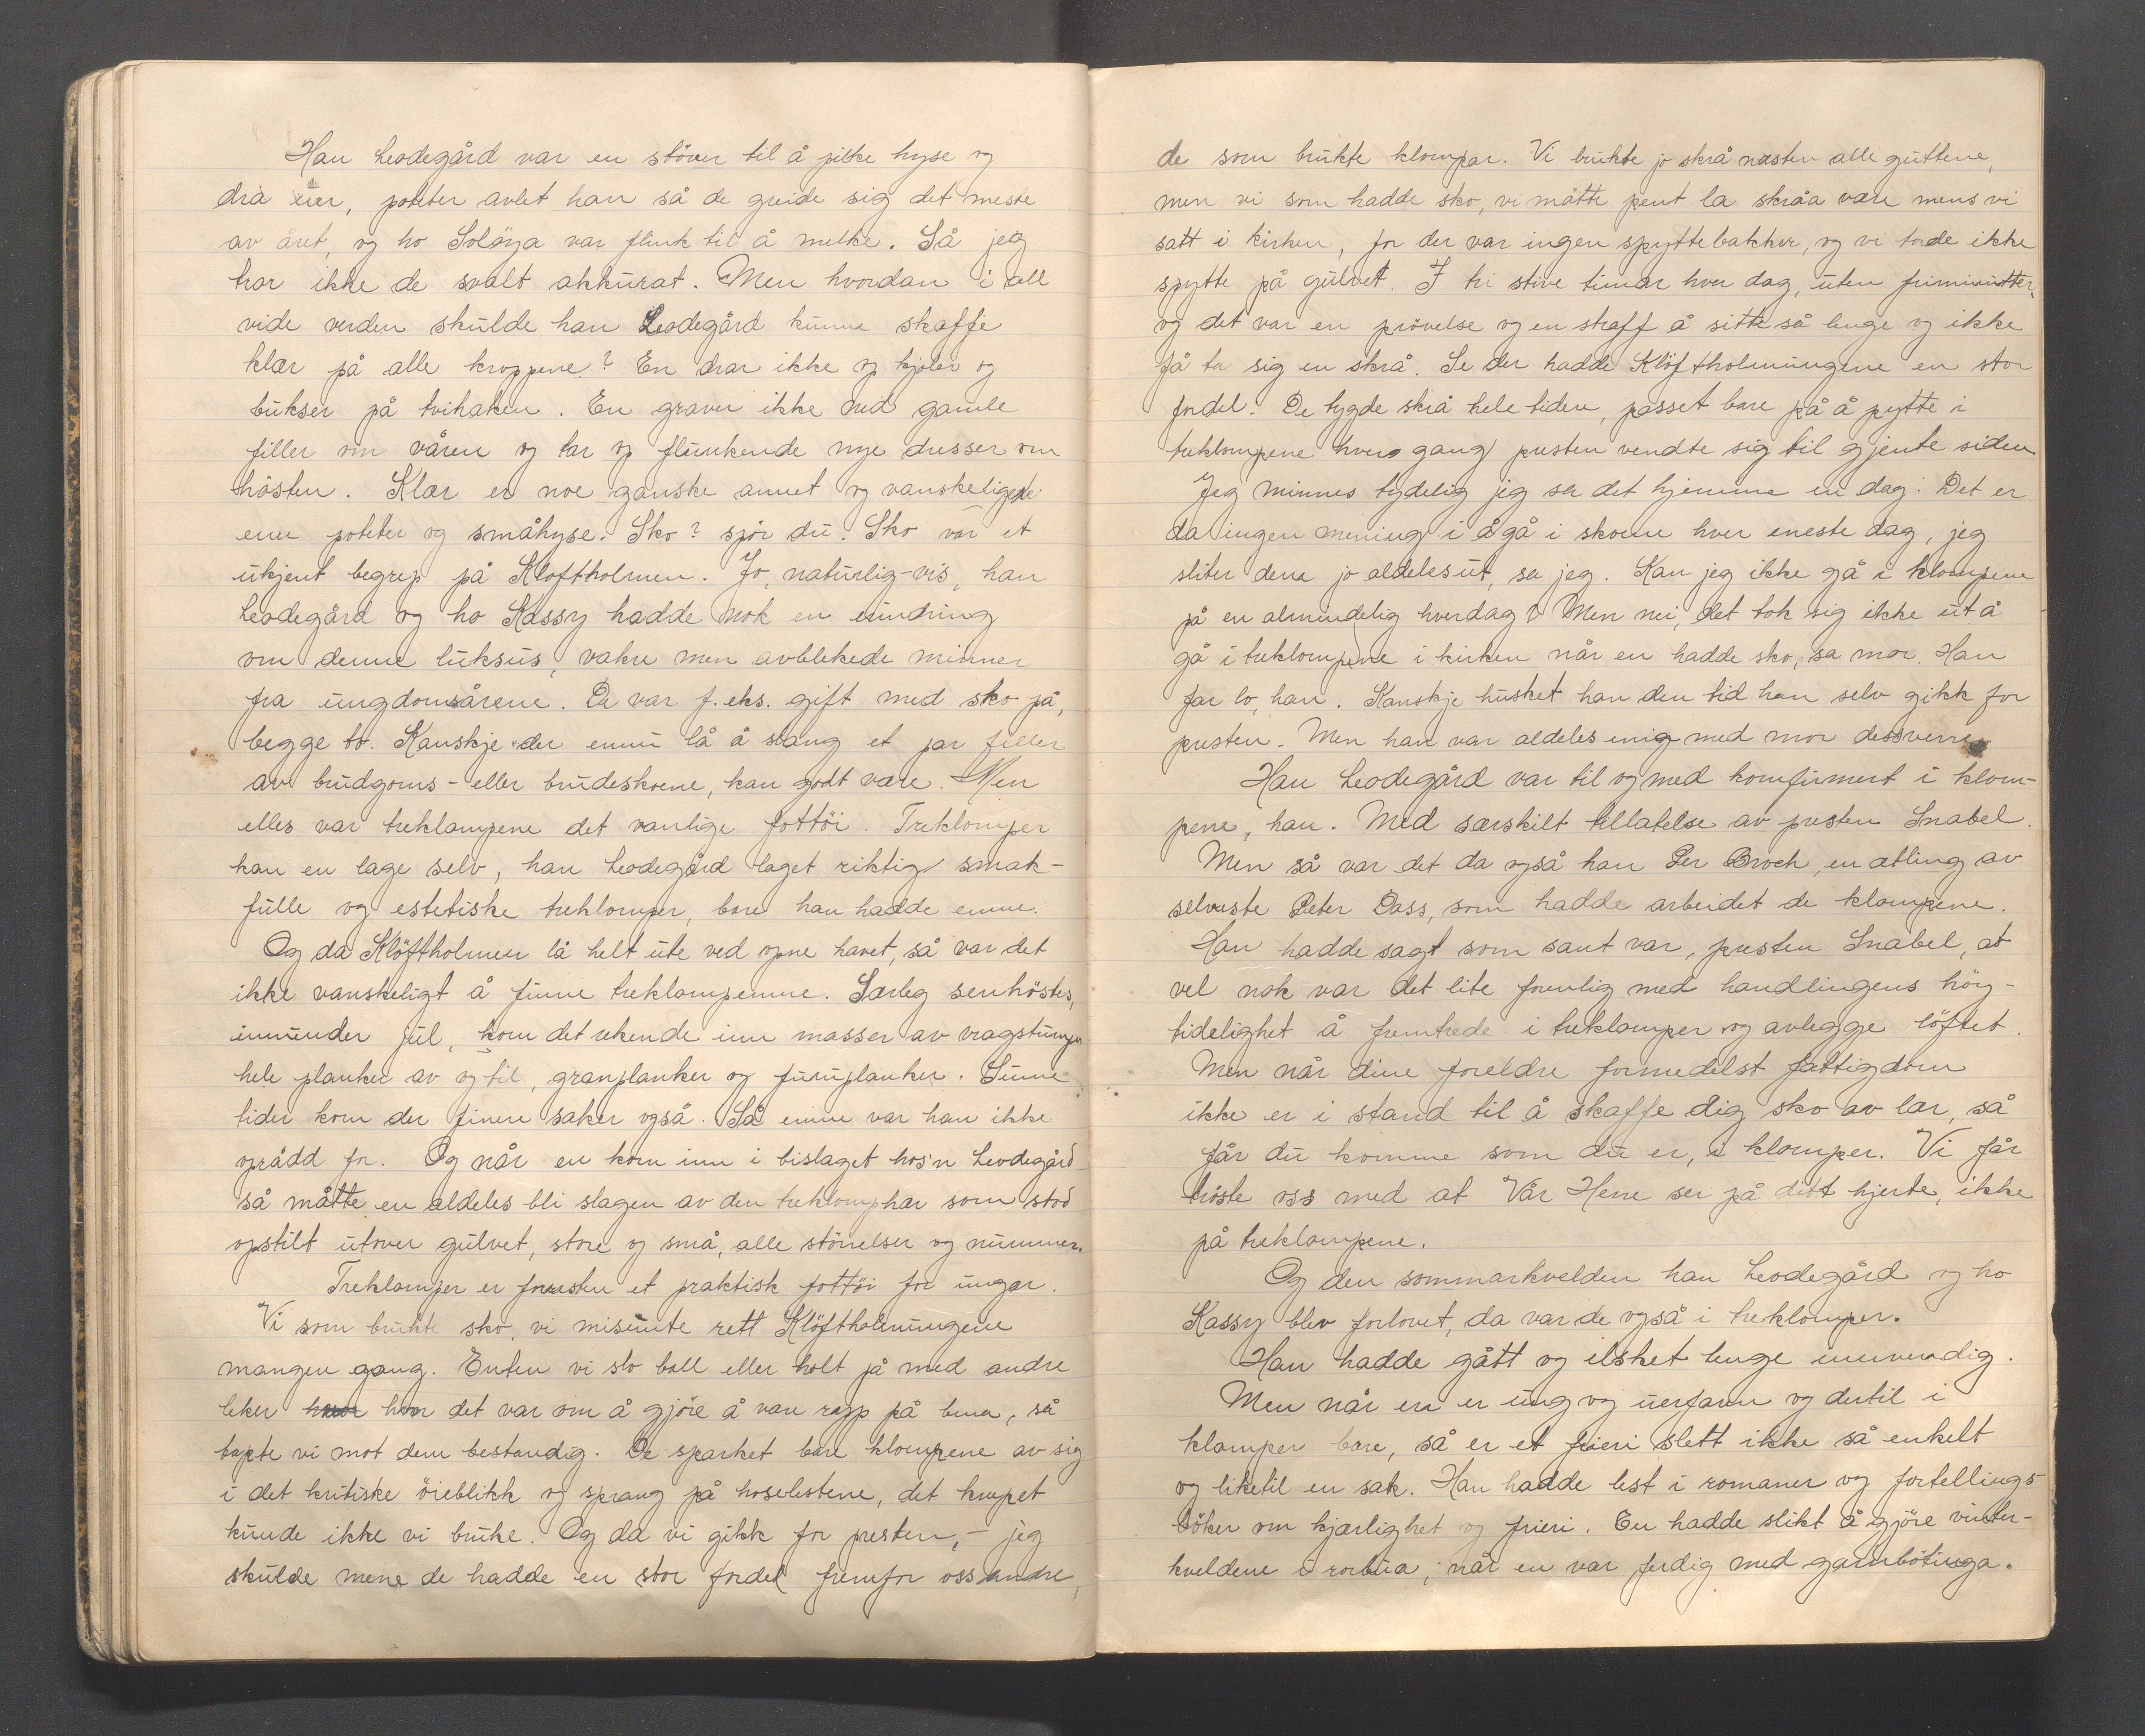 Han Leodegård var en støver til å pilke hyse og
dra uer, poteter avlet han så de greide sig det meste
av året, og ho Soløya var flink til å melke. Så jeg
tror ikke de svalt akkurat. Men hvordan i all
vide verden skulde han Leodegård kunne skaffe
klær på alle kroppene? En drar ikke op kjoler og
bukser på tvihaken. En graver ikke ned gamle
filler om våren og tar op flunkende nye dresser om
høsten. Klær er noe ganske annet og vanskeligere
enn poteter og småhyse. Sko? spør du. Sko var et
ukjent begrep på Kløftholmen. Jo, naturlig-vis, han
Leodegård og ho Kassy hadde nok en erindring
om denne luksus, vakre men avblekede minner
fra ungdomsårene. De var f. eks. gift med sko på,
begge to. Kanskje der ennu lå å slang et par filler
av brudgoms- eller brudeskoene, kan godt være. Men
elles var treklompene det vanlige fottöi. Treklomper
kan en lage selv, han Leodegård laget riktig smak-
fulle og estetiske treklomper, bare han hadde emne.
Og da Klöftholmen lå helt ute ved opne havet, så var det
ikke vanskeligt å finne treklompemne. Særleg senhöstes,
innunder jul, kom det rekende inn masser av vragstumper
hele planker av og til, granplanker og furuplanker. Sume
tider kom der finere saker også. Så emne var han ikke
oprådd for. Og når en kom inn i bislaget hos'n Leodegård
så måtte en aldeles bli slagen av den treklomphar som stod
opstilt utover gulvet, store og små, alle störrelser og nummer.
Treklomper er forresten et praktisk fottöi for ungar.
Vi som brukte sko, vi misunte rett Klöftholmungene
mangen gang. Enten vi slo ball eller holt på med andre
leker hvor det var om å gjöre å være rapp på bena, så
tapte vi mot dem bestandig. De sparket bare klompene av sig
i det kritiske öieblikk og sprang på hoselestene, det knepet
kunde ikke vi bruke. Og da vi gikk for presten, - jeg
skulde mene de hadde en stor fordel fremfor oss andre,
de som brukte klompar. Vi brukte jo skrå næsten alle guttene,
men vi som hadde sko, vi måtte pent la skråa være mens vi
satt i kirken, for der var ingen spyttebakker, og vi torde ikke
spytte på gulvet. I tri stive timar hver dag, uten friminutter,
og det var en prövelse og en straff å sitte så lenge og ikke
få ta sig en skrå. Se der hadde Klöftholmungene en stor
fordel. De tygde skrå hele tiden, passet bare på å pytte i
treklompene hver gang presten vendte sig til gjente siden
Jeg minnes tydelig jeg sa det hjemme en dag: Det er
da ingen mening i å gå i skoene hver eneste dag, jeg
sliter dem jo aldeles ut, sa jeg. Kan jeg ikke gå i klompene
på en almindelig hverdag? Men nei, det tok sig ikke ut å
gå i treklompene i kirken når en hadde sko, sa mor. Han
far lo, han. Kanskje husket han den tid han selv gikk for
presten. Men han var aldeles enig med mor dessverre.
Han Leodegård var til og med konfirmert i klom-
pene, han. Med særskilt tillatelse av presten Snabel.
Men så var det da også han Per Broch, en ætling av
selveste Peter Dass, som hadde arbeidet de klompene.
Han hadde sagt som sant var, presten Snabel, at
vel nok var det lite forenlig med handlingens höy-
tidelighet å fremtrede i treklomper og avlegge löftet.
Men når dine foreldre formedelst fattigdom
ikke er i stand til å skaffe dig sko av lær, så
får du komme som du er, i klomper. Vi får
tröste oss med at Vår Herre ser på ditt hjerte, ikke
på treklompene.
Og den sommarkvelden han Leodegård og ho
Kassy blev forlovet, da var de også i treklomper.
Han hadde gått og elsket lenge innvendig.
Men når en er ung og uerfarn og dertil i
klomper bare, så er et frieri slett ikke så enkelt
og liketil en sak. Han hadde lest i romaner og fortellings-
böker om kjærlighet og frieri. En hadde slikt å gjöre vinter-
kveldene i rorbua, når en var ferdig med garnbötinga.